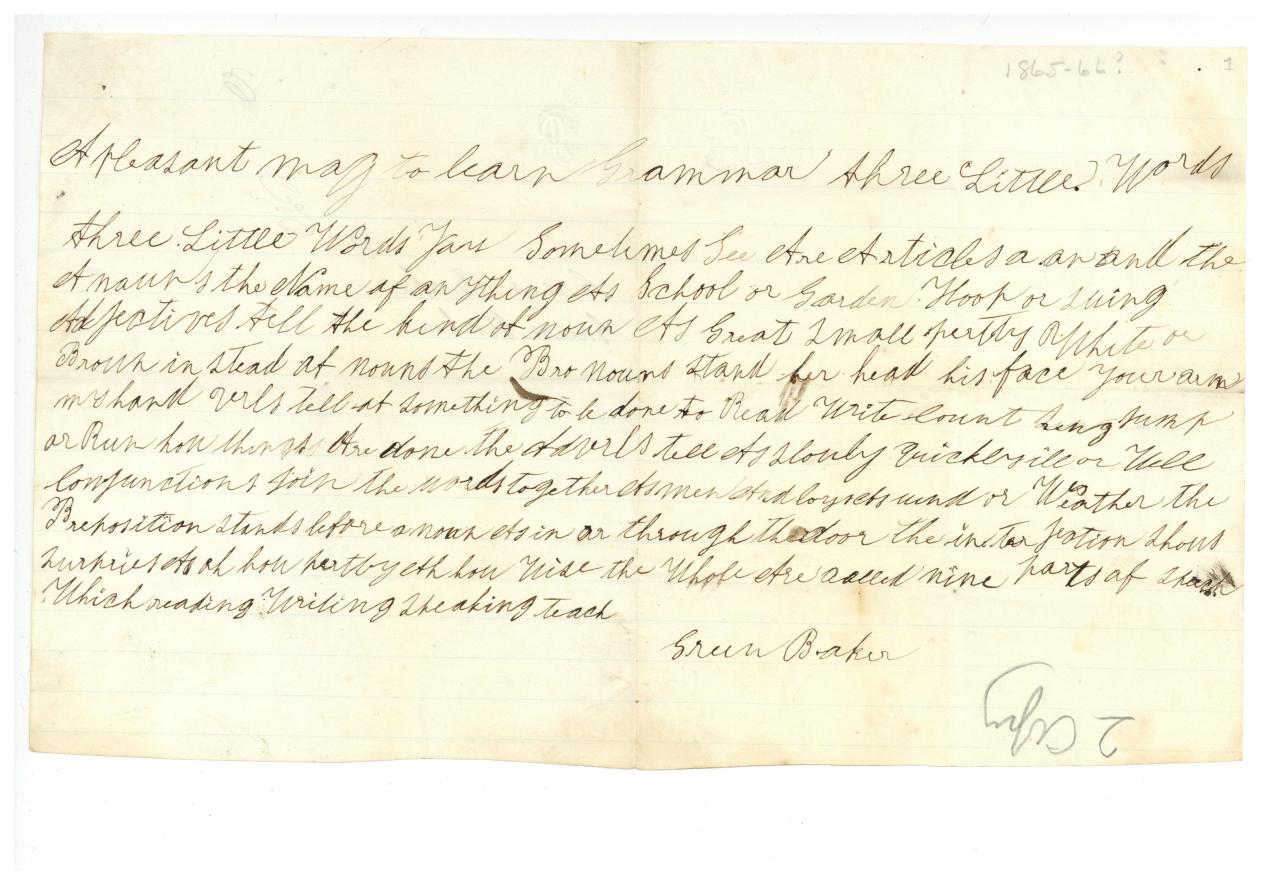 1865-66?
1
A pleasant may to learn Grammar three Little Words
three Little Words You Sometimes See Are Articles a an and the
A noun s the Name of any thing As School or Garden Hoop or swing
Adjectives tell the kind of noun As Great small pertty White or
Broun in stead of nouns the Pro nouns stand her head his face your arm
my hand verls tell of something to be done to Read Write Count Seng Jump
or Run hou things Are done the Adverls tell As slouly quickly ill or Uell
Conjunctions join the words together As men And boys As uind or Weather the
Preposition stands before a noun As in or through the door the interjection shous
surpries As oh hou pertty Ah hou Uise the Whole Are called nine parts of speach
Which reading Writing speaking teach
Green Baker
2 Copy